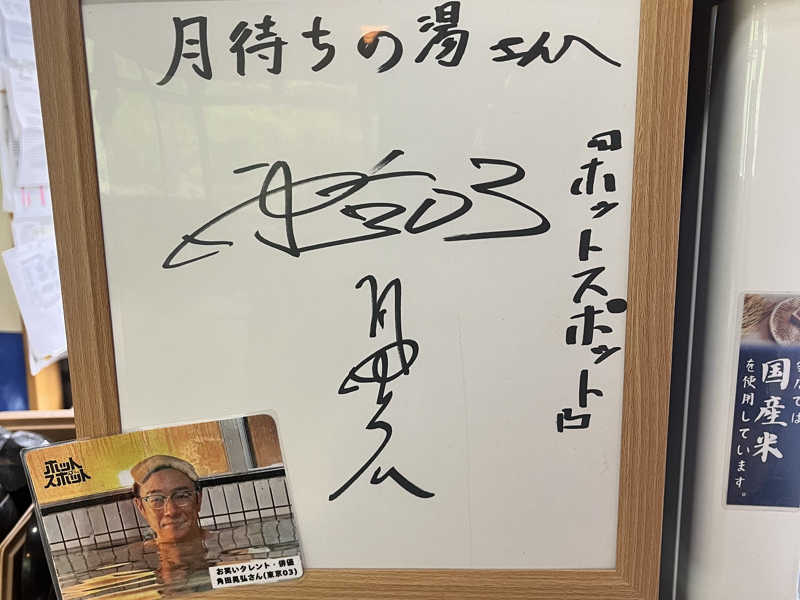 月待ちの湯さんへ
「ホットスポット」
東京03
角田晃広
ホット
スポット
お笑いタレント・俳優
角田晃弘さん(東京03)
国産米
を使用しています。